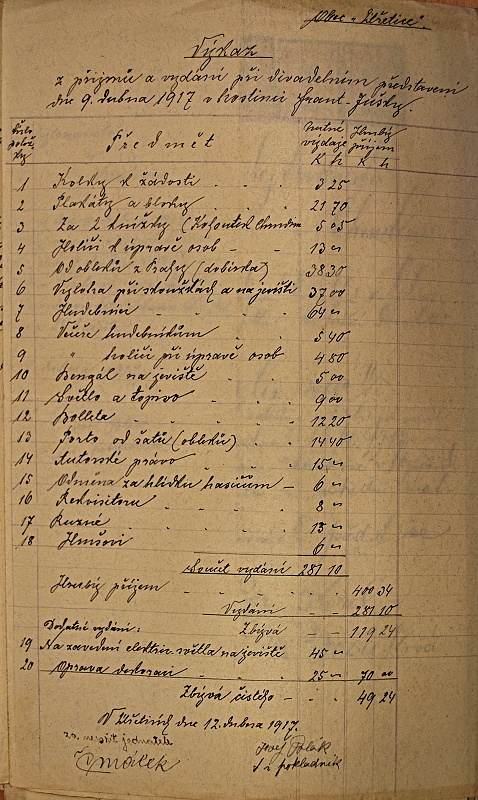 Obec "Úžetice".
Výkaz
z příjmu a vydání při divadelním představení
dne 9. dubna 1917 v hostinci Frant. Jušky.
Číslo polož- ky Předmět Nutné vydaje Hrubý příjem
K h K h
1 Kolky k žádosti 3 25
2 Plakáty a bloky 21 70
3 Za 2 knížky (Kohoutek Chrudim 5 05
4 Holiči k úpravě osob 13 "
5 Od obleků z Prahy (dobírka) 38 30
6 Výloha při zkouškách a na jevišti 37 00
7 Hudebníci 64 "
8 Večeře hudebníkům 5 40
9 " holiči při úpravě osob 4 80
10 Bengál na jeviště 5 00
11 Světlo a topivo 9 00
12 Bolleta 12 20
13 Porto od šatů (obleků) 14 40
14 Autorské právo 15 "
15 Odměna za hlídku hasičům 6 "
16 Rekvisitoru 8 "
17 Různé 13 "
18 6 "
Součet vydání 281 10
Hrubý příjem 400 34
Vydání 281 10
Zbývá 119 24
Dodatné vydání:
19 Na zavedení elektric. světla na jeviště 45 "
20 Oprava dekorací 25 " 70 "
Zbývá čistého 49 24
dne 12. dubna 1917.
za jednatele
Josef Polák
t. č. pokladník